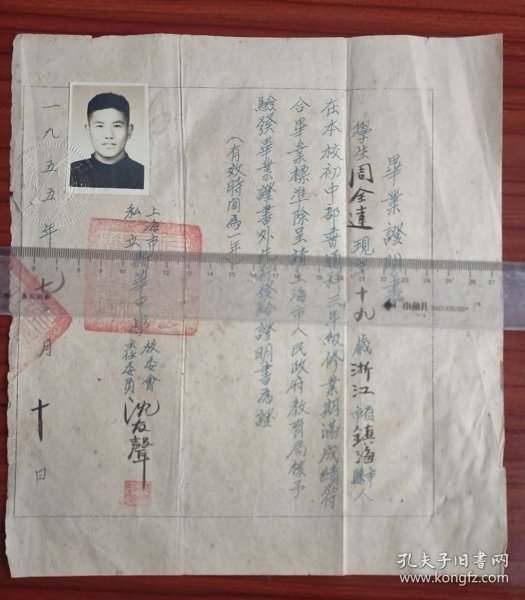 畢業證明書
學生周全達現年十九歲浙江省鎮海縣市人
在本校初中部普通科三年級修業期滿成績符
合畢業標準除呈請上海市人民政府教育局核予
驗發畢業證書外先行發給證明書為證
(有效時間為一年)
上海市
私立新華中學校委會
主任委員沈友聲
一九五五年 月十日
小魚儿
孔夫子旧书网
kongfz.com